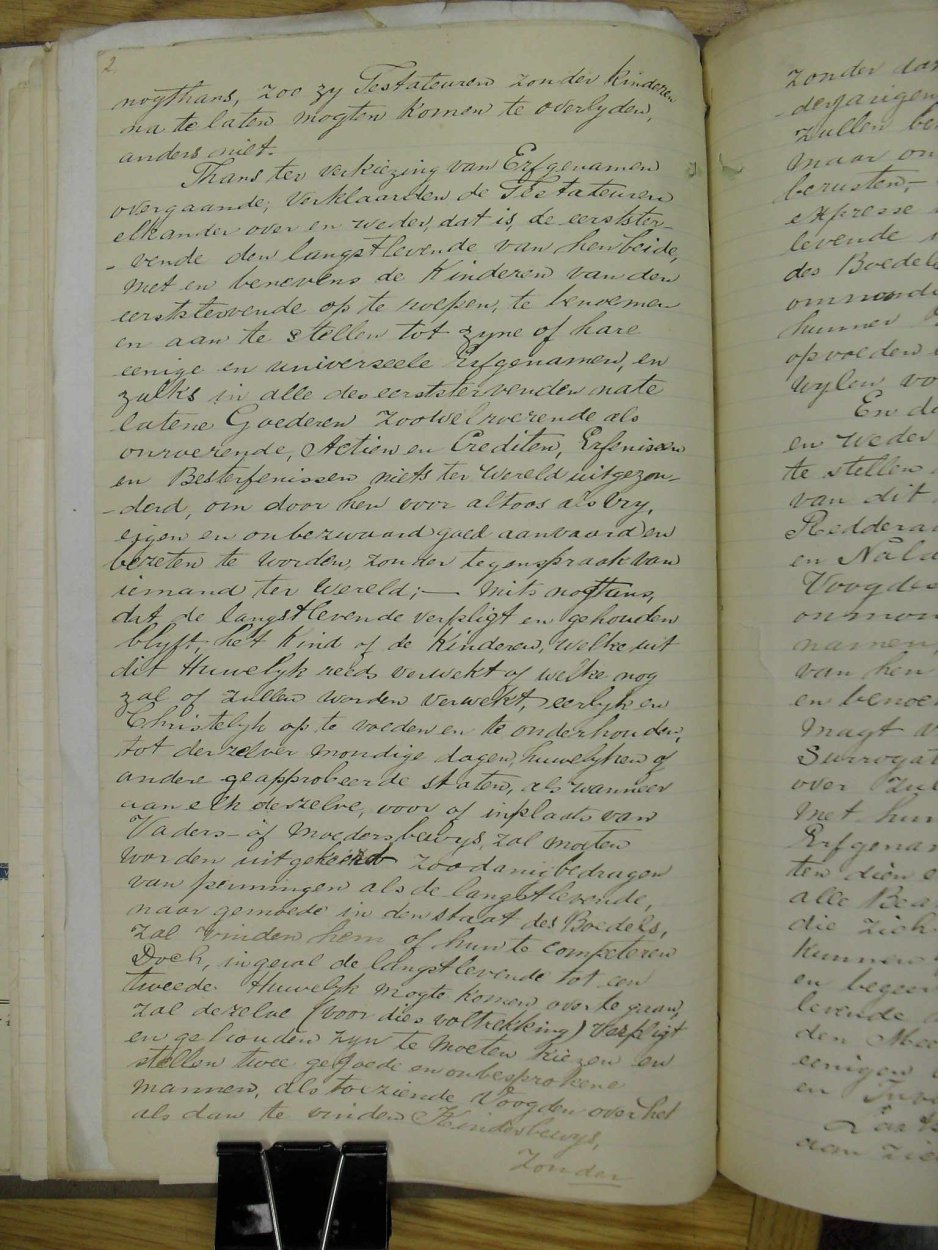 2.
nogthans, zoo zy Testateuren zonder kinderen
na te laten mogten komen te overlyden,
anders niet.
Thans ter verkiezing van Erfgenamen
overgaande; verklaarden de Testateuren
elkander over en weder, dat is, de eerstster-
-vende den langstlevende van hen beide,
met en benevens de Kinderen van den
eerststervende op te roepen, te benoemen
en aan te stellen tot zyne of hare
eenige en universeele Erfgenamen, en
zulks in alle des eerststervenden nate
latene Goederen zoowel roerende als
onroerende, Actien en Crediten, Erfenissen
en Besterfenissen niets ter Wereld uitgezon-
-derd, om door hen voor altoos als vry,
eigen en onbezwaard goed aanvaard en
bezeten te worden, zonder tegenspraak van
iemand ter Wereld; — mits nogthans,
dat de langstlevende verpligt en gehouden
blyft, het Kind of de Kinderen, welke uit
dit Huwelyk reeds verwekt of welke nog
zal of zullen worden verwekt, eerlyk en
Christelyk op te voeden en te onderhouden,
tot derzelver mondige dagen, huwelyken of
andere geapprobeerde staten, als wanneer
aan elk derzelve, voor of inplaats van
Vaders- of Moedersbewys, zal moeten
worden uitgekeerd zoodanig bedragen
van penningen als de langstlevende,
naar gemoede in den staat des Boedels,
zal vinden hem of hun te competeren
Doch, ingeval de langstlevende tot een
tweede Huwelyk mogte komen over te gaan,
zal dezelve (voor dies voltrekking) verpligt
en gehouden zyn te moeten kiezen en
stellen twee gegoede en onbesprokene
mannen, als toeziende Voogden over het
als dan te vinden Kindesbewys,
Zonder
zonder dar
-derjarigen
zullen be
maar on
berusten,-
expresse
levende
des Boedel
opvoeden
wylen, vo
En de
en weder
te stellen
van dit
Redderaa
en Nala
Voogdes
onmon
namen,
van hen
en benoe
Magt v
Surrogat
over zul
met hun
Erfgenam
ten dien e
alle Bea
die zich
kunnen
en begeer
levende
den Mee
eenigen
en Inve
Laats